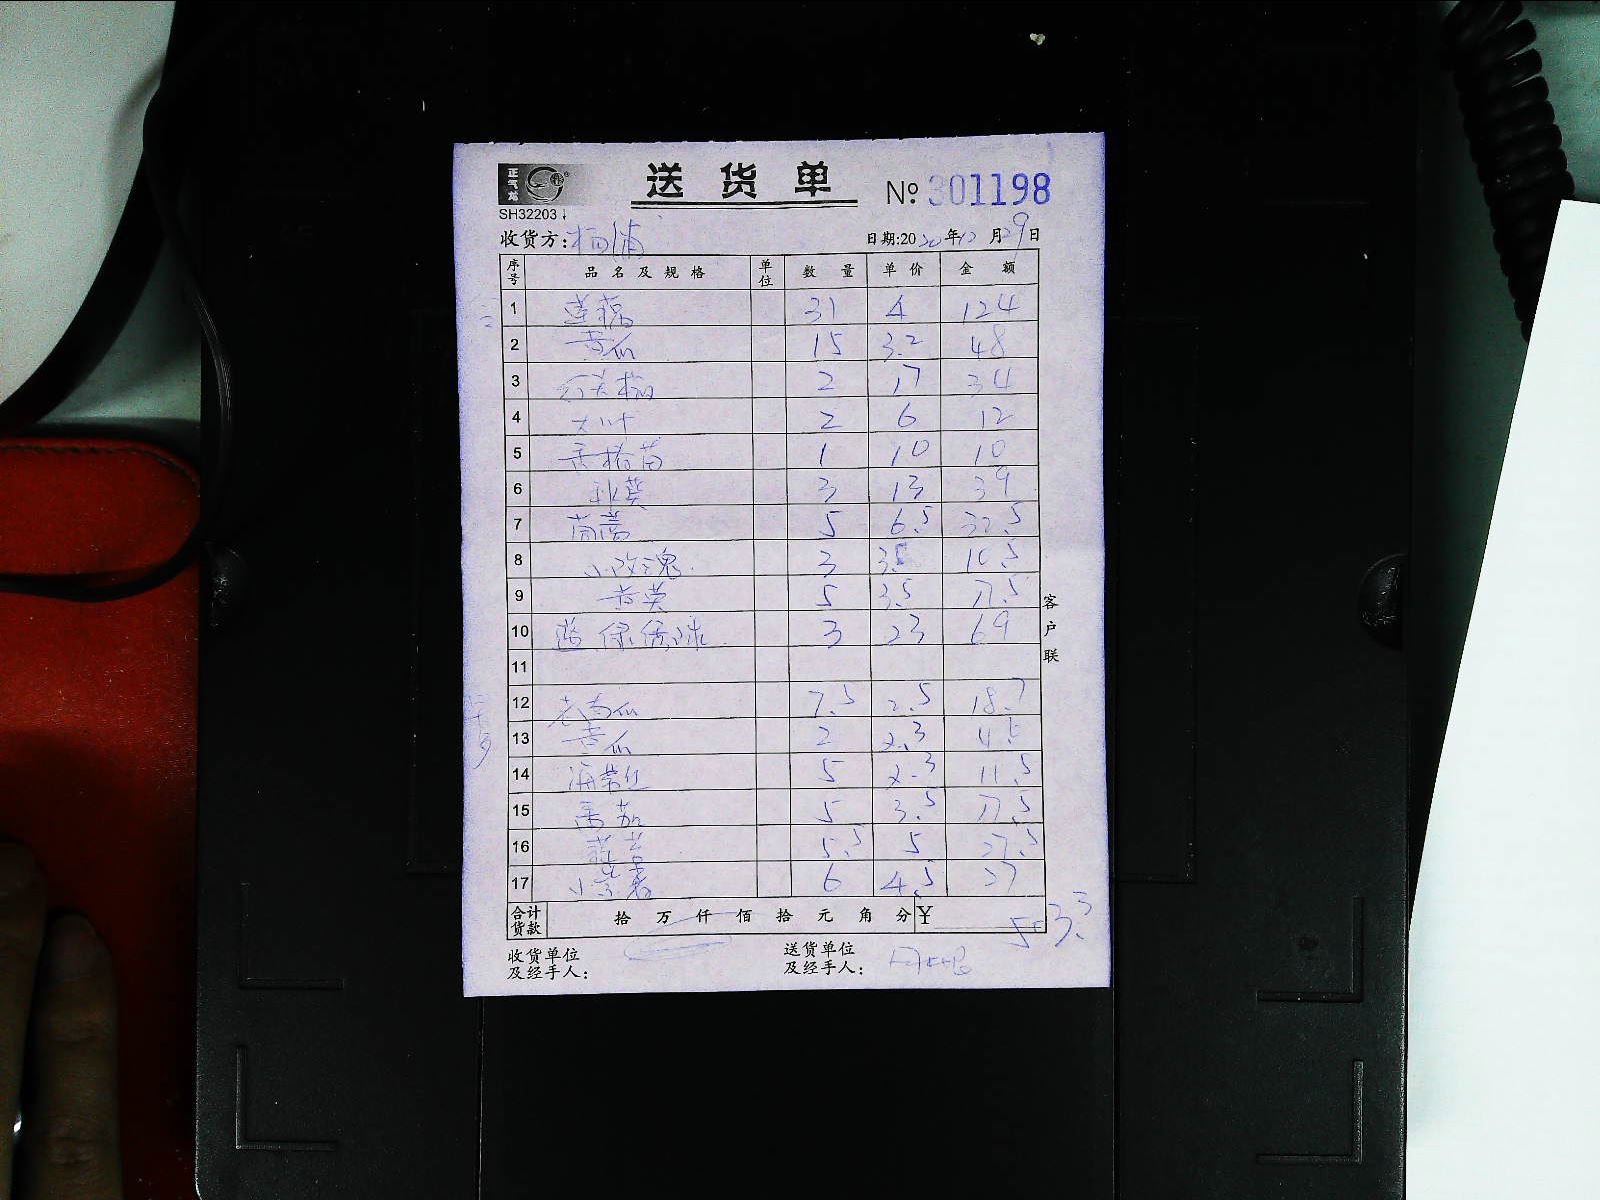 正气龙
送货单
№ 301198
SH32203
收货方: 杨浦
日期:2020年12月29日
序号 品名及规格 单位 数量 单价 金额
1 莲藕 31 4 124
2 黄瓜 15 3.2 48
3 2 17 34
4 大叶 2 6 12
5 1 10 10
6 秋葵 3 13 39
7 茼蒿 5 6.5 32.5
8 小玫瑰 3 3.5 10.5
9 5 3.5 17.5
10 3 23 69
11
12 老南瓜 7.5 2.5 18.7
13 黄瓜 2 2.3 4.6
14 海带丝 5 2.3 11.5
15 番茄 5 3.5 17.5
16 5.5 5 27.5
17 6 4.5 27
合计货款 拾 万 仟 佰 拾 元 角 分 ¥
收货单位及经手人:
送货单位及经手人:
客户联